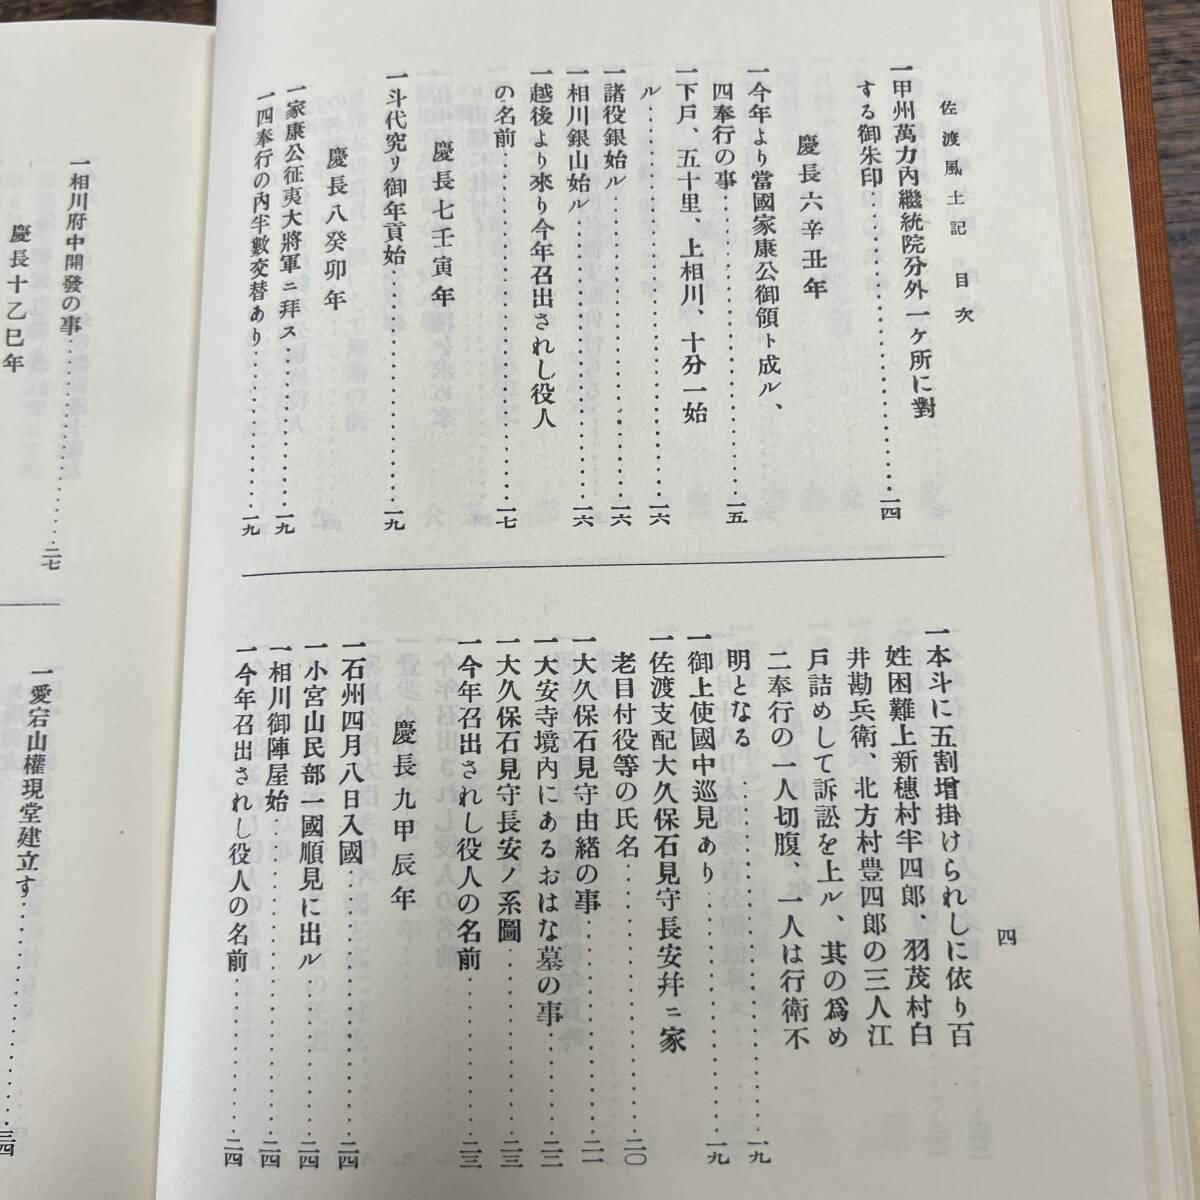 佐渡風土記 目次
四
一甲州萬力內繼統院分外一ケ所に對
する御朱印……一四
慶長六辛丑年
一今年より當國家康公御領ト成ル、
四奉行の事……一五
一下戸、五十里、上相川、十分一始
ル……一六
一諸役銀始ル……一六
一相川銀山始ル……一六
一越後より來り今年召出されし役人
の名前……一七
慶長七壬寅年
一斗代究リ御年貢始……一九
慶長八癸卯年
一家康公征夷大將軍ニ拜ス……一九
一四奉行の內半數交替あり……一九
一本斗に五割增掛けられしに依り百
姓困難上新穗村半四郎、羽茂村白
井勘兵衞、北方村豊四郎の三人江
戸詰めして訴訟を上ル、其の爲め
二奉行の一人切腹、一人は行衞不
明となる……一九
一御上使國中巡見あり……一九
一佐渡支配大久保石見守長安幷ニ家
老目付役等の氏名……二〇
一大久保石見守由緖の事……二一
一大安寺境內にあるおはな墓の事……二二
一大久保石見守長安ノ系圖……二三
一今年召出されし役人の名前……二三
慶長九甲辰年
一石州四月八日入國……二四
一小宮山民部一國順見に出ル……二四
一相川御陣屋始……二四
一今年召出されし役人の名前……二四
一相川府中開發の事……二七
慶長十乙巳年
一愛宕山權現堂建立す……三四